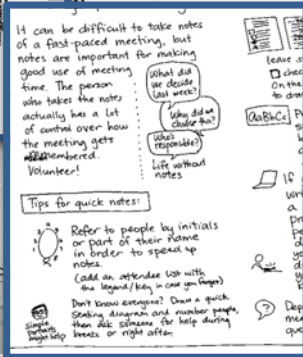 It can be difficult to take notes
of a fast-paced meeting, but
notes are important for making
good use of meeting
time. The person
who takes the notes
actually has a lot
of control over how
the meeting gets
remembered.
Volunteer!
What did
we decide
last week?
Why did we
choose this?
Who's
responsible?
Life without
notes
Tips for quick notes:
Refer to people by initials
or part of their name
in order to speed up
notes.
(add an attendee list with
the legend/key in case you forget)
simple
portraits
might help
Don't know everyone? Draw a quick
seating diagram and number people,
then ask someone for help during
breaks or right after.
leave s
chec
On the
to dra
AaBbCc
P
If
wri
a
p
pe
ye
d
ye
y
?
Dep
mee
que